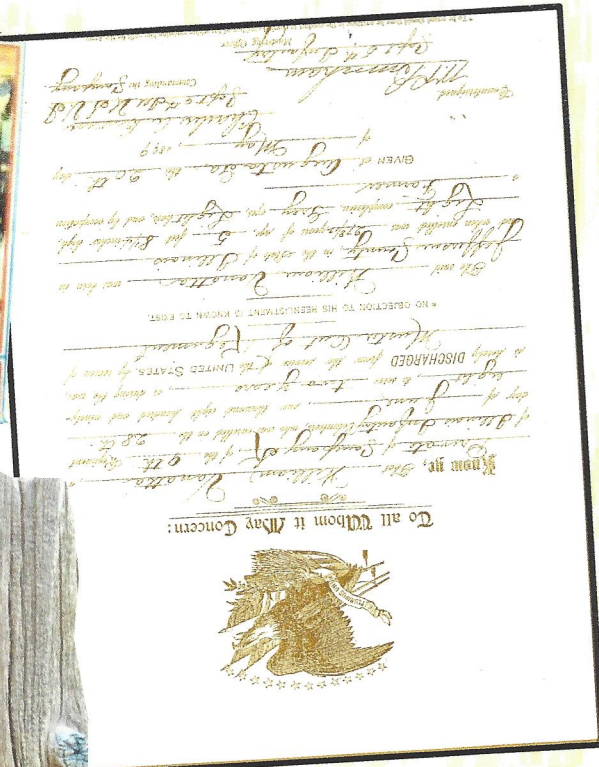 To all Whom it May Concern:
Know ye, That William Vonatta, a
Private of Company of the 9th Regiment
of Illinois Infantry Volunteers, who was enrolled on the 28th
day of June, one thousand eight hundred and ninety-
eight, to serve two years, or during the war,
is hereby DISCHARGED from the service of the UNITED STATES, by reason of
Muster Out of Regiment
* NO OBJECTION TO HIS REENLISTMENT IS KNOWN TO EXIST.
The said William Vonatta was born in
Jefferson County, in the State of Illinois
and when enrolled was years of age, 5 feet 8 inches high,
Light complexion, Grey eyes, Light hair, and by occupation
a Farmer
GIVEN at Augusta Ga. this 20th day
of May, 1899.
Charles
Capt 9th Ill
Commanding the Company
Countersigned
Capt 6th Infantry
Mustering Officer